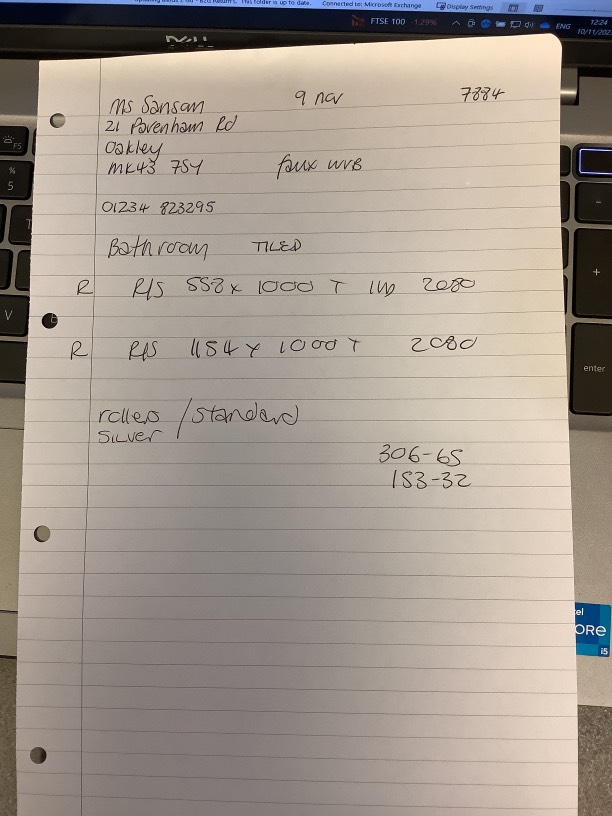 Connected to: Microsoft Exchange
Display Settings
FTSE 100 -1.29%
ENG
12:24
DELL
Ms Sansam 9 nov 7884
21 Pavenham Rd
Oakley
MK43 7SY faux WVB
01234 823295
Bathroom TILED
R R/S 558 x 1000 T 2080
R R/S 1154 x 1000 T 2080
rollers / standard
SILVER
306-65
153-32
F5
%
5
V
-
+
enter
i5